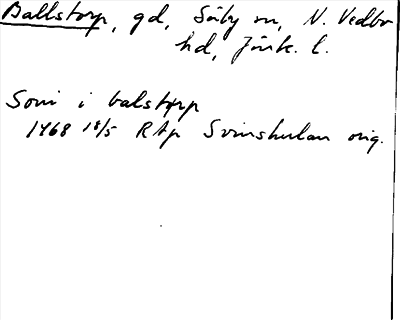 Ballstorp, gd, Säby sn, N. Vedbo
hd, Jönk. l.
Soni i balstorp
1468 18/5 RAp Svinhulan orig.